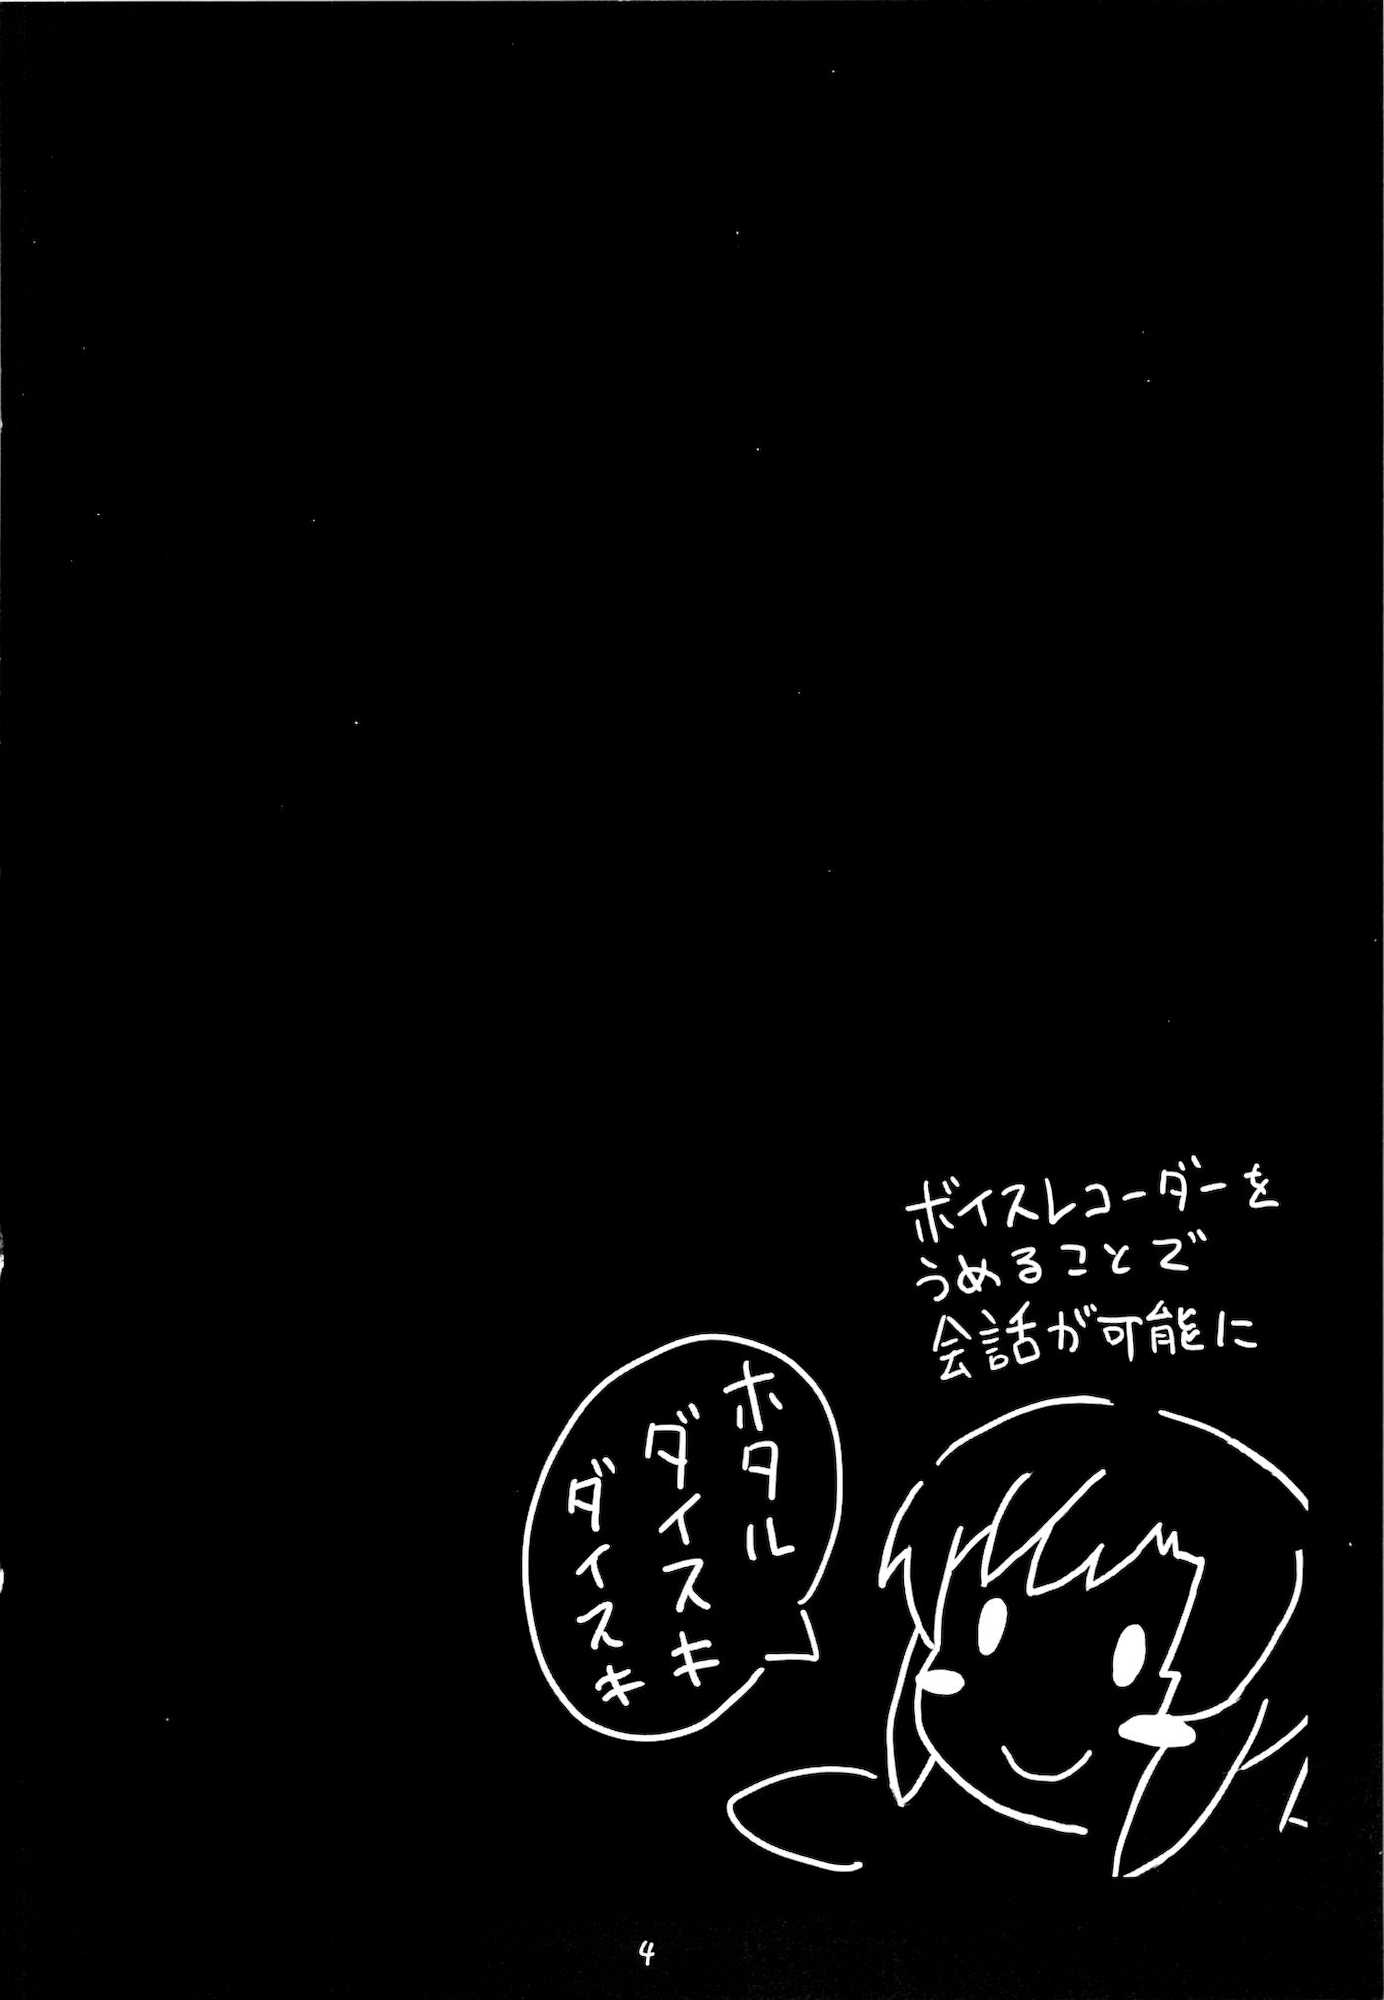 ボイスレコーダーを
うめることで
会話が可能に
ホタル
ダイスキ
ダイスキ
4